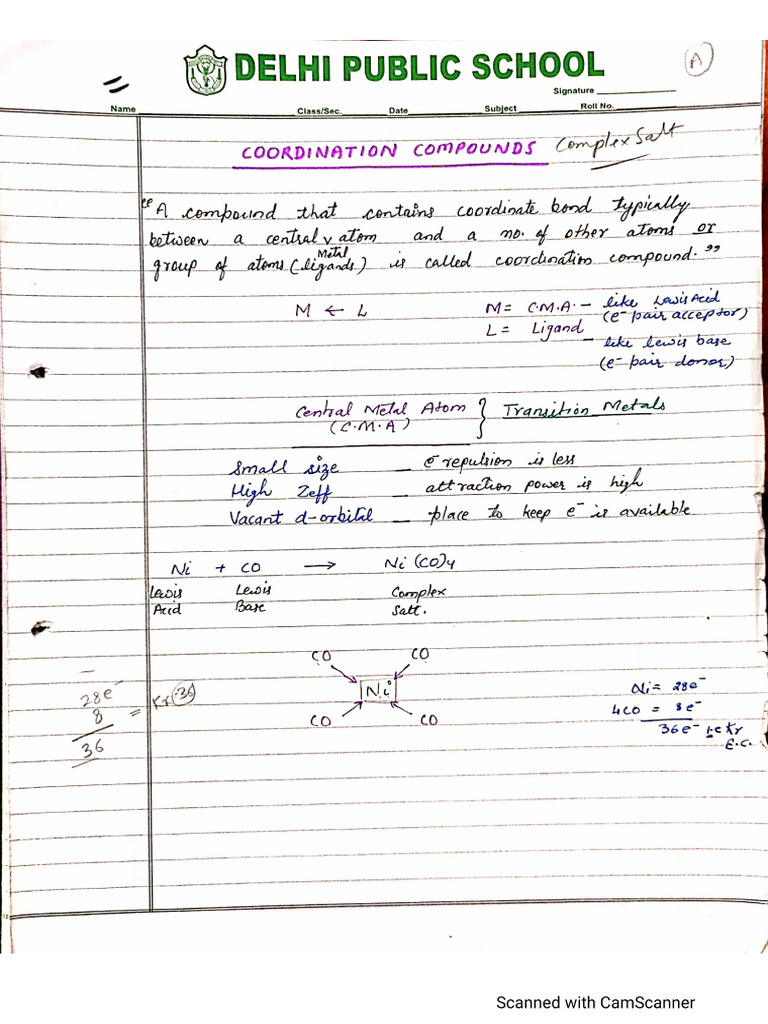 DELHI PUBLIC SCHOOL
A
Signature
Name Class/Sec. Date Subject Roll No.
COORDINATION COMPOUNDS Complex Salt
"A compound that contains coordinate bond typically
between a central Metal atom and a no. of other atoms or
group of atoms (ligands) is called coordination compound."
M ← L M = C.M.A. – like Lewis Acid
(e⁻ pair acceptor)
L = Ligand
– like lewis base
(e⁻ pair donor)
Central Metal Atom } Transition Metals
(C.M.A)
Small size – e⁻ repulsion is less
High Zeff – attraction power is high
Vacant d-orbital – place to keep e⁻ is available
Ni + CO → Ni(CO)4
Lewis Lewis Complex
Acid Base Salt.
CO CO
Ni°
CO CO
28e⁻
8 = Kr(36)
36
Ni = 28e⁻
4CO = 8e⁻
36e⁻ i.e Kr
E.C.
Scanned with CamScanner